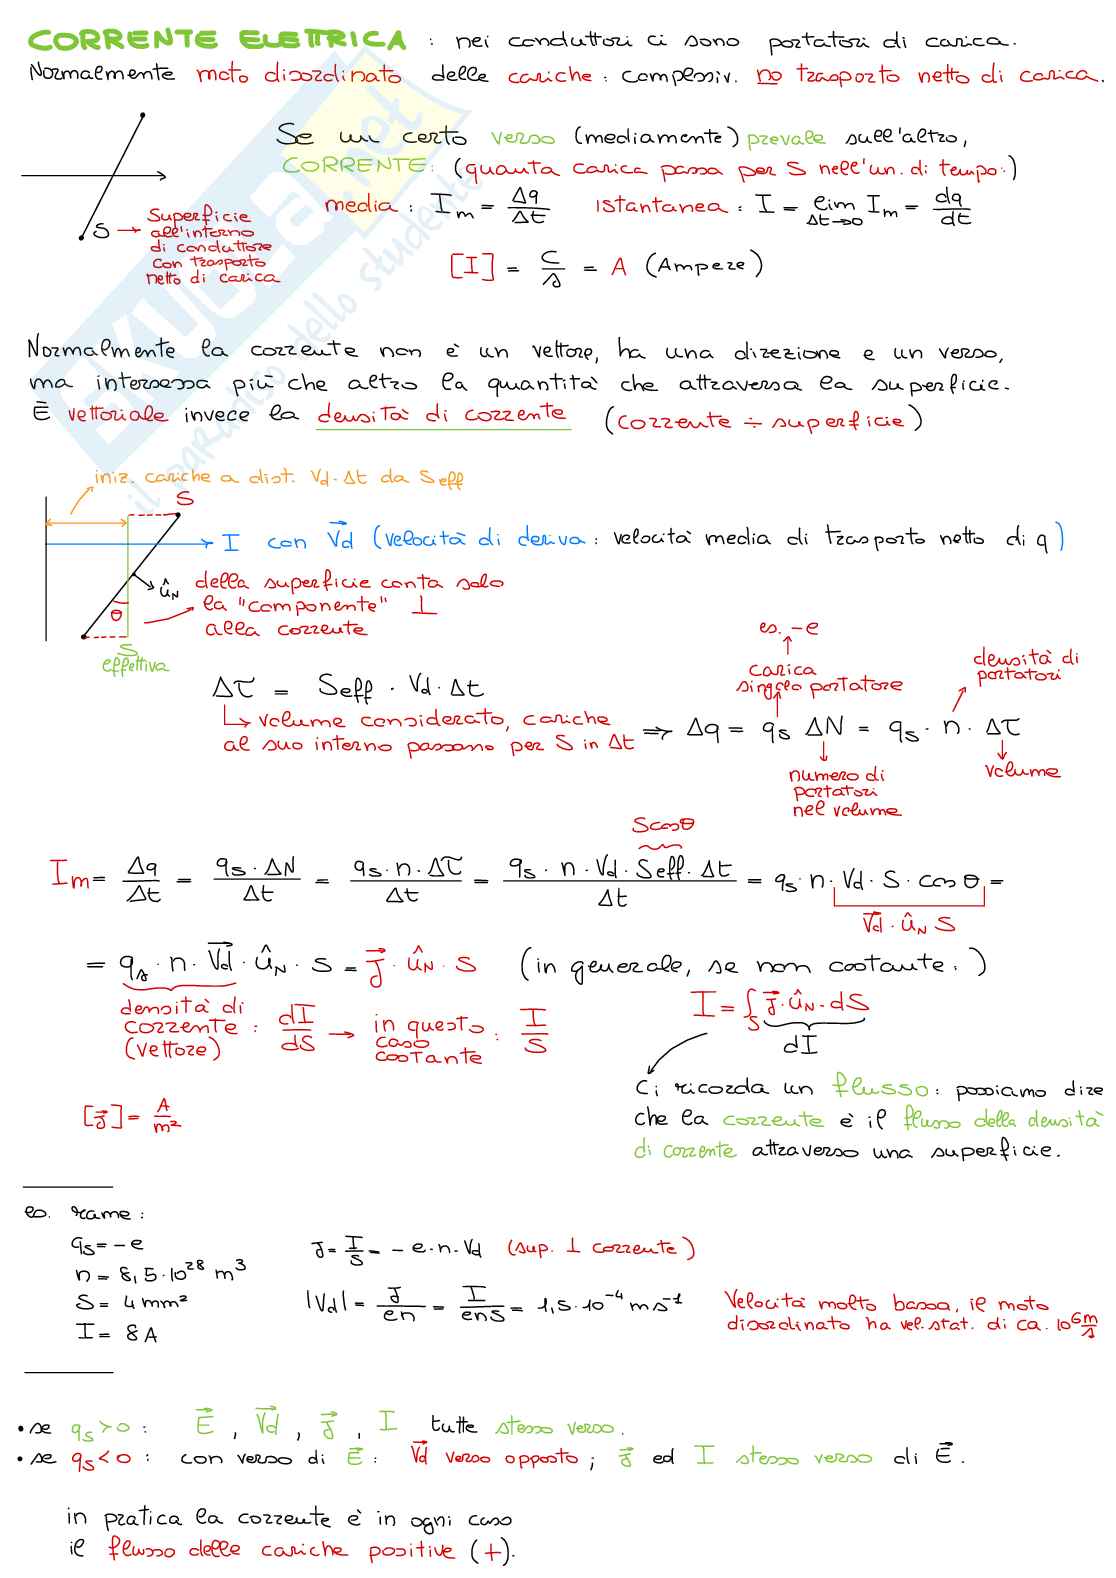 CORRENTE ELETTRICA : nei conduttori ci sono portatori di carica.
Normalmente moto disordinato delle cariche : complessiv. no trasporto netto di carica.
Se un certo verso (mediamente) prevale sull'altro,
CORRENTE: (quanta carica passa per S nell'un. di tempo:)
media : Im = Δq/Δt istantanea : I = lim Δt→0 Im = dq/dt
S → Superficie
all'interno
di conduttore
con trasporto
netto di carica
[I] = C/s = A (Ampere)
Normalmente la corrente non è un vettore, ha una direzione e un verso,
ma interessa più che altro la quantità che attraversa la superficie.
È vettoriale invece la densità di corrente (corrente ÷ superficie)
iniz. cariche a dist. Vd·Δt da Seff
S
I con V⃗d (velocità di deriva : velocità media di trasporto netto di q)
ûN
θ
della superficie conta solo
la "componente" ⊥
alla corrente
S
effettiva
es. -e
carica
singolo portatore
densità di
portatori
Δτ = Seff · Vd · Δt
↳ volume considerato, cariche
al suo interno passano per S in Δt ⇒ Δq = qs ΔN = qs · n · Δτ
numero di
portatori
nel volume
volume
Scosθ
Im = Δq/Δt = qs·ΔN/Δt = qs·n·Δτ/Δt = qs · n · Vd · Seff · Δt/Δt = qs · n · Vd · S · cosθ =
V⃗d · ûN S
= qs · n · V⃗d · ûN · S = J⃗ · ûN · S (in generale, se non costante : )
densità di
corrente : dI/dS → in questo caso costante : I/S
(vettore)
I = ∫S J⃗ · ûN · dS
dI
Ci ricorda un flusso : possiamo dire
che la corrente è il flusso della densità
di corrente attraverso una superficie.
[J⃗] = A/m²
es. rame :
qs = -e
n = 8,5·10²⁸ m³
S = 4 mm²
I = 8 A
J = I/S = - e·n·Vd (sup. ⊥ corrente)
|Vd| = J/en = I/enS = 1,5·10⁻⁴ m s⁻¹
Velocità molto bassa, il moto
disordinato ha vel. stat. di ca. 10⁶ m/s
• se qs > 0 : E⃗ , V⃗d , J⃗ , I tutte stesso verso.
• se qs < 0 : con verso di E⃗ : V⃗d verso opposto ; J⃗ ed I stesso verso di E⃗.
in pratica la corrente è in ogni caso
il flusso delle cariche positive (+).
skuola.net
il paradiso dello studente